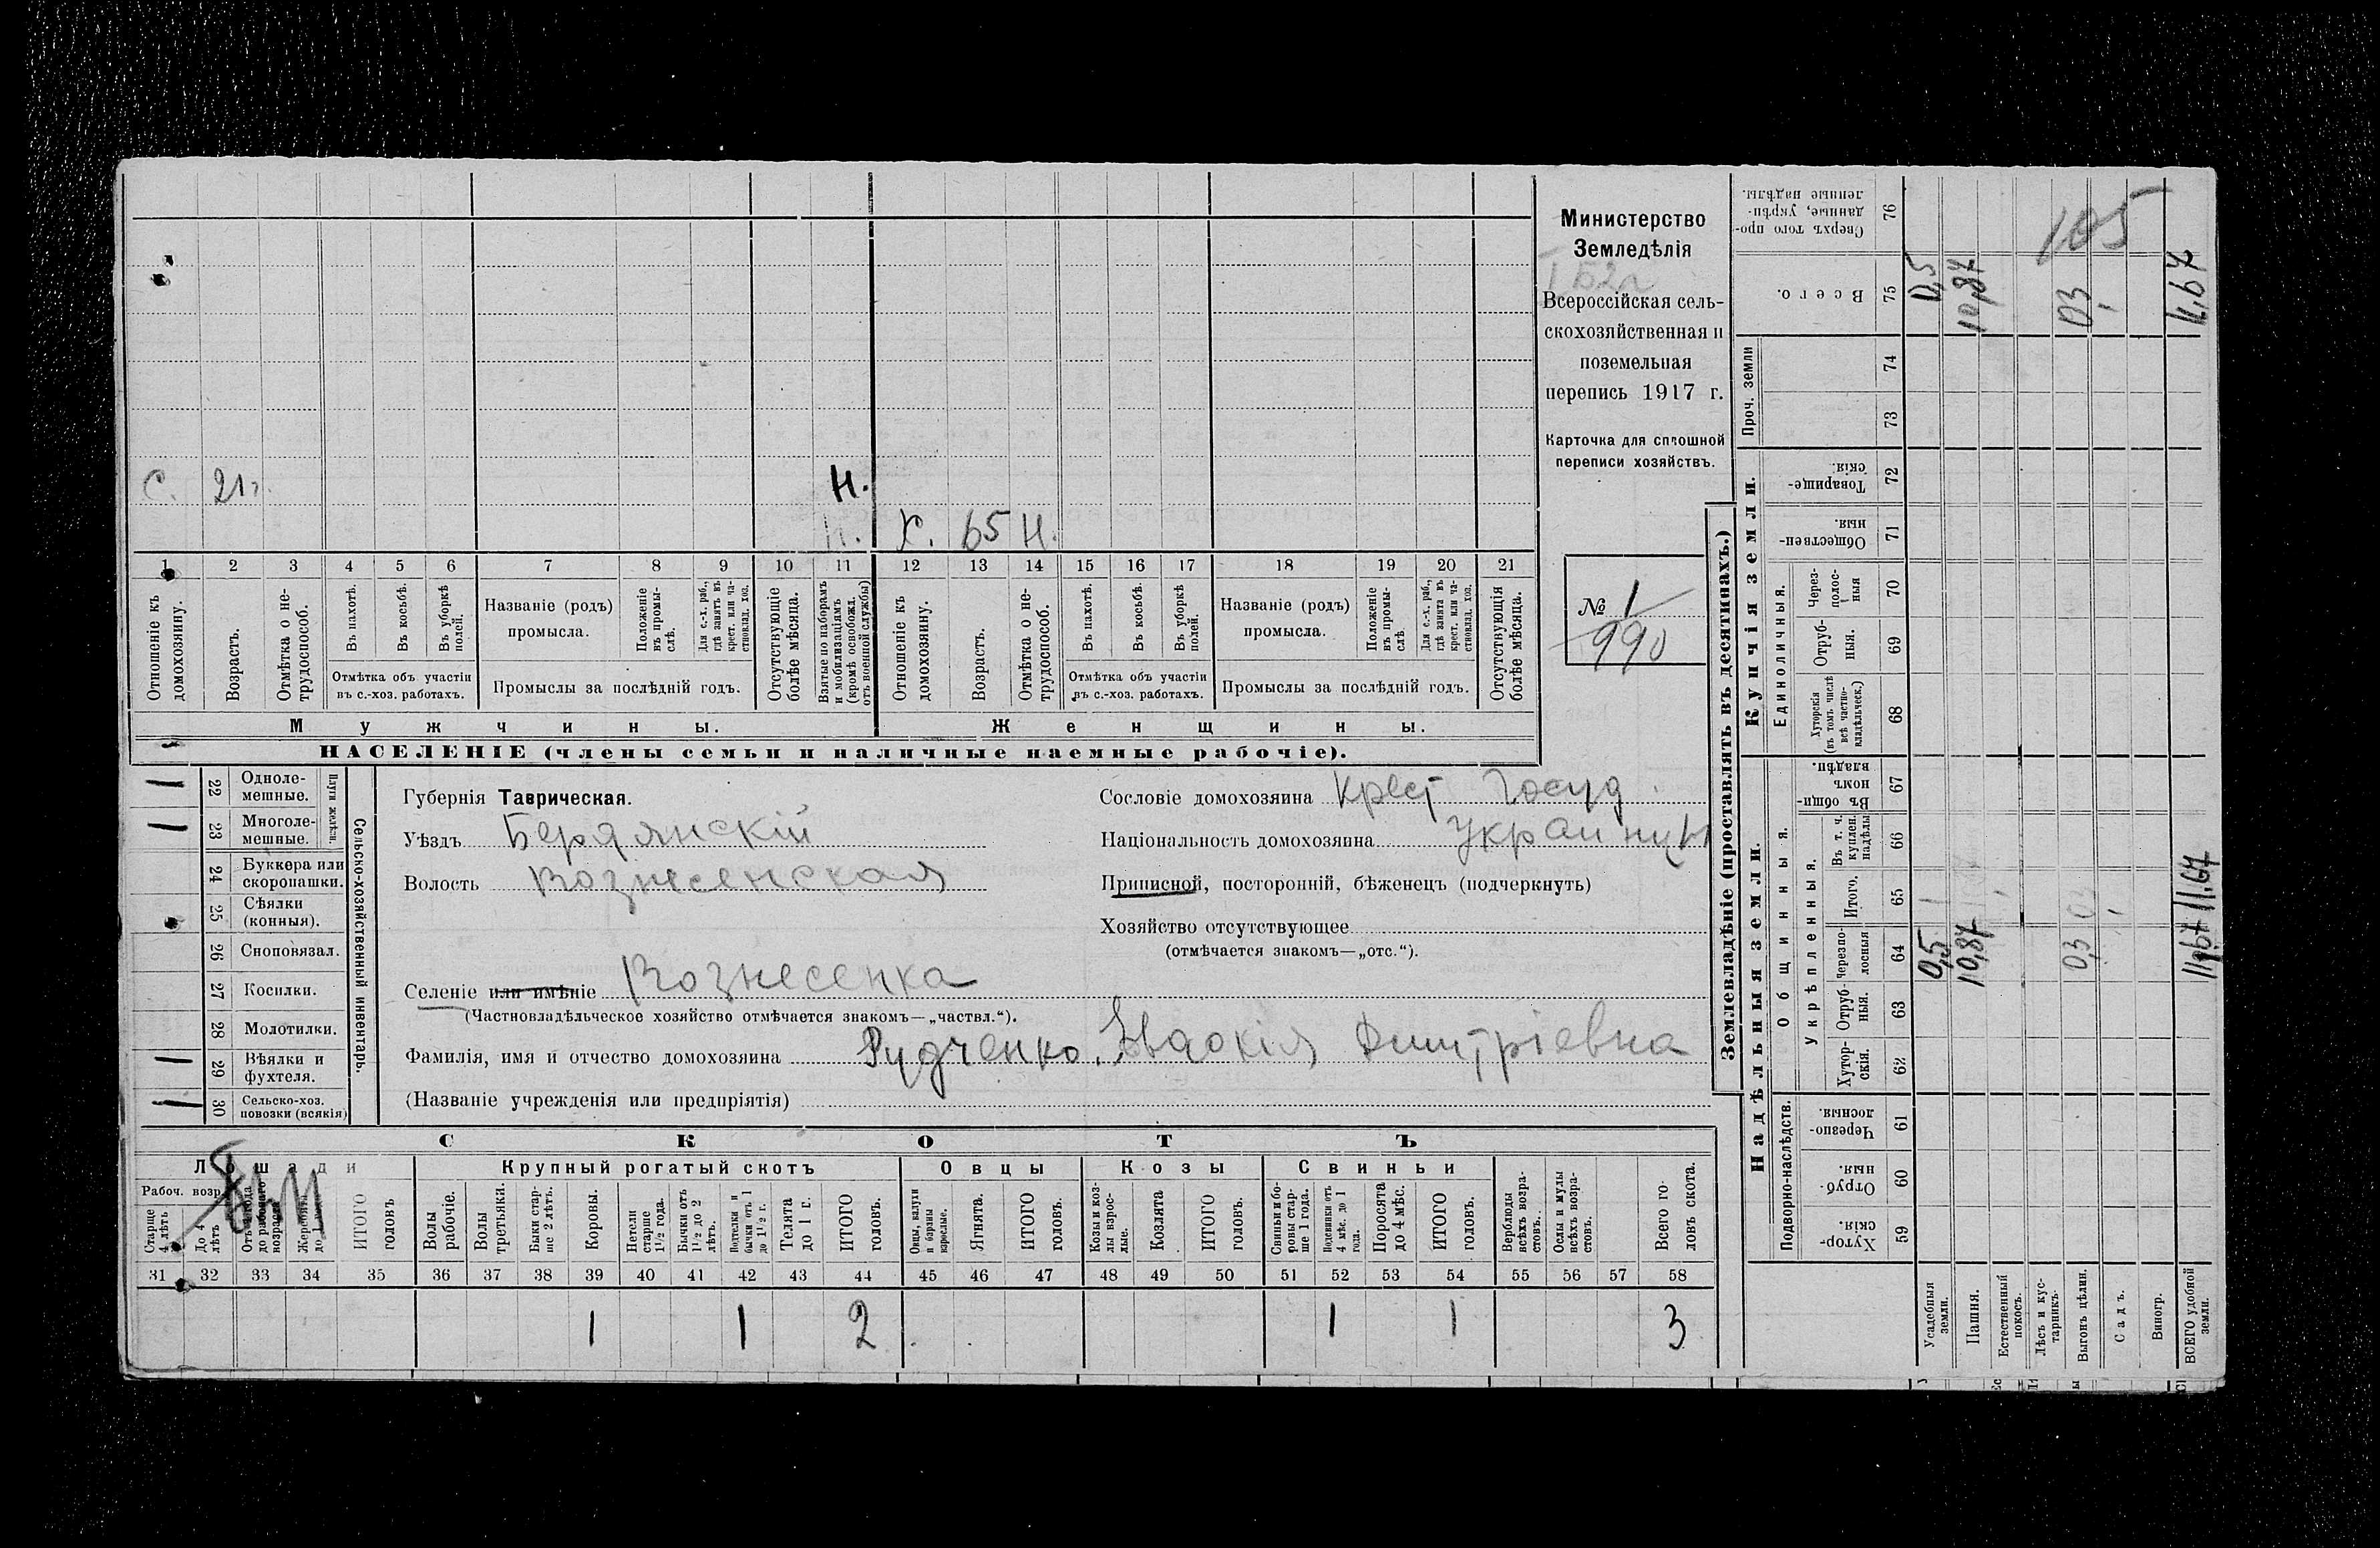 Министерство
Земледѣлія
Всероссійская сель-
скохозяйственная и
поземельная
перепись 1917 г.
Карточка для сплошной
переписи хозяйствъ.
№ 1
990
С. 21 Н.
Х. 65 Н.
1 2 3 4 5 6 7 8 9 10 11 12 13 14 15 16 17 18 19 20 21
Отношеніе къ домохозяину.
Возрастъ.
Отмѣтка о не-трудоспособ.
Въ пахотѣ.
Въ косьбѣ.
Въ уборкѣ полей.
Отмѣтка объ участіи
въ с.-хоз. работахъ.
Названіе (родъ)
промысла.
Положеніе въ промы-слѣ.
Для с.-х. раб., гдѣ занятъ въ крест. или ча-стновлад. хоз.
Промыслы за послѣдній годъ.
Отсутствующіе болѣе мѣсяца.
Взятые по наборамъ и мобилизаціямъ (кромѣ освобожд. отъ военной службы)
Отношеніе къ домохозяину.
Возрастъ.
Отмѣтка о не-трудоспособ.
Въ пахотѣ.
Въ косьбѣ.
Въ уборкѣ полей.
Отмѣтка объ участіи
въ с.-хоз. работахъ.
Названіе (родъ)
промысла.
Положеніе въ промы-слѣ
Для с.-х. раб., гдѣ занята въ крест. или ча-стновлад. хоз.
Промыслы за послѣдній годъ.
Отсутствующія болѣе мѣсяца.
Мужчины. Женщины.
НАСЕЛЕНІЕ (члены семьи и наличные наемные рабочіе).
Сельско-хозяйственный инвентарь.
Плуги желѣзн.
1 22 Одноле-мешные.
1 23 Многоле-мешные.
24 Буккера или скоропашки.
25 Сѣялки (конныя).
26 Сноповязал.
27 Косилки.
28 Молотилки.
1 29 Вѣялки и фухтеля.
1 30 Сельско-хоз. повозки (всякія)
Губернія Таврическая.
Уѣздъ Бердянскій
Волость Вознесенская
Сословіе домохозяина Крест Госуд.
Національность домохозяина Украинцы
Приписной, посторонній, бѣженецъ (подчеркнуть)
Хозяйство отсутствующее
(отмѣчается знакомъ—„отс.“).
Селеніе или имѣніе Вознесенка
(Частновладѣльческое хозяйство отмѣчается знакомъ—„частвл.“).
Фамилія, имя и отчество домохозяина Рудченко Евдокія Дмитріевна
(Названіе учрежденія или предпріятія)
СКОТЪ
Лошади Крупный рогатый скотъ Овцы Козы Свиньи
Рабоч. возр.
Старше 4 лѣтъ
До 4 лѣтъ
Отъ 1 года до рабочаго возраста
Жеребята до 1
ИТОГО головъ
Волы рабочіе.
Волы третьяки.
Быки стар-ше 2 лѣтъ.
Коровы.
Нетели старше 1½ года.
Бычки отъ 1½ до 2 лѣтъ.
Подтелки и бычки отъ 1 до 1½ г.
Телята до 1 г.
ИТОГО головъ.
Овцы, валухи и бараны взрослые.
Ягнята.
ИТОГО головъ.
Козы и коз-лы взрос-лые.
Козлята
ИТОГО головъ.
Свиньи и бо-ровы стар-ше 1 года.
Подсвинки отъ 4 мѣс. до 1 года.
Поросята до 4 мѣс.
ИТОГО головъ.
Верблюды всѣхъ возра-стовъ.
Ослы и мулы всѣхъ возра-стовъ.
Всего го-ловъ скота.
31 32 33 34 35 36 37 38 39 40 41 42 43 44 45 46 47 48 49 50 51 52 53 54 55 56 57 58
1 1 2 1 1 3
Землевладѣніе (проставлять въ десятинахъ.)
Надѣльныя земли. Купчія земли. Проч. земли
Подворно-наслѣдств.
Общинныя.
Укрѣпленныя.
Единоличныя.
Хутор-скія. 59
Отруб-ныя. 60
Черезпо-лосныя. 61
Хутор-скія. 62
Отруб-ныя. 63
Черезпо-лосныя 64
Итого. 65
Въ т. ч. куплен. надѣлы 66
Въ общи-номъ владѣн. 67
Хуторскія (въ томъ числѣ всѣ частно-владѣльческ.) 68
Отруб-ныя. 69
Через-полос-ныя 70
Обществен-ныя. 71
Товарище-скія. 72
73
74
Всего. 75
Сверхъ того про-данные, укрѣп-ленные надѣлы. 76
Усадебныя земли. 0,5 0,5
Пашня. 10,87 10,87
Естественный покосъ.
Лѣсъ и кус-тарникъ.
Выгонъ цѣлин. 0,3 03
Садъ.
Виногр.
ВСЕГО удобной земли. 11,67 11,67 11,67
105